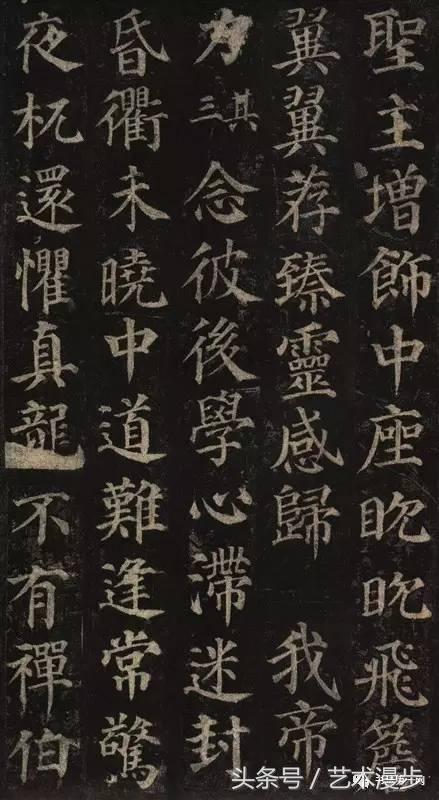 聖主增飾中座眈眈飛簷
翼翼荐臻靈感歸 我帝
力其三念彼後學心滯迷封
昏衢未曉中道難逢常驚
夜杌還懼真龍不有禪伯
头条号／艺术漫步